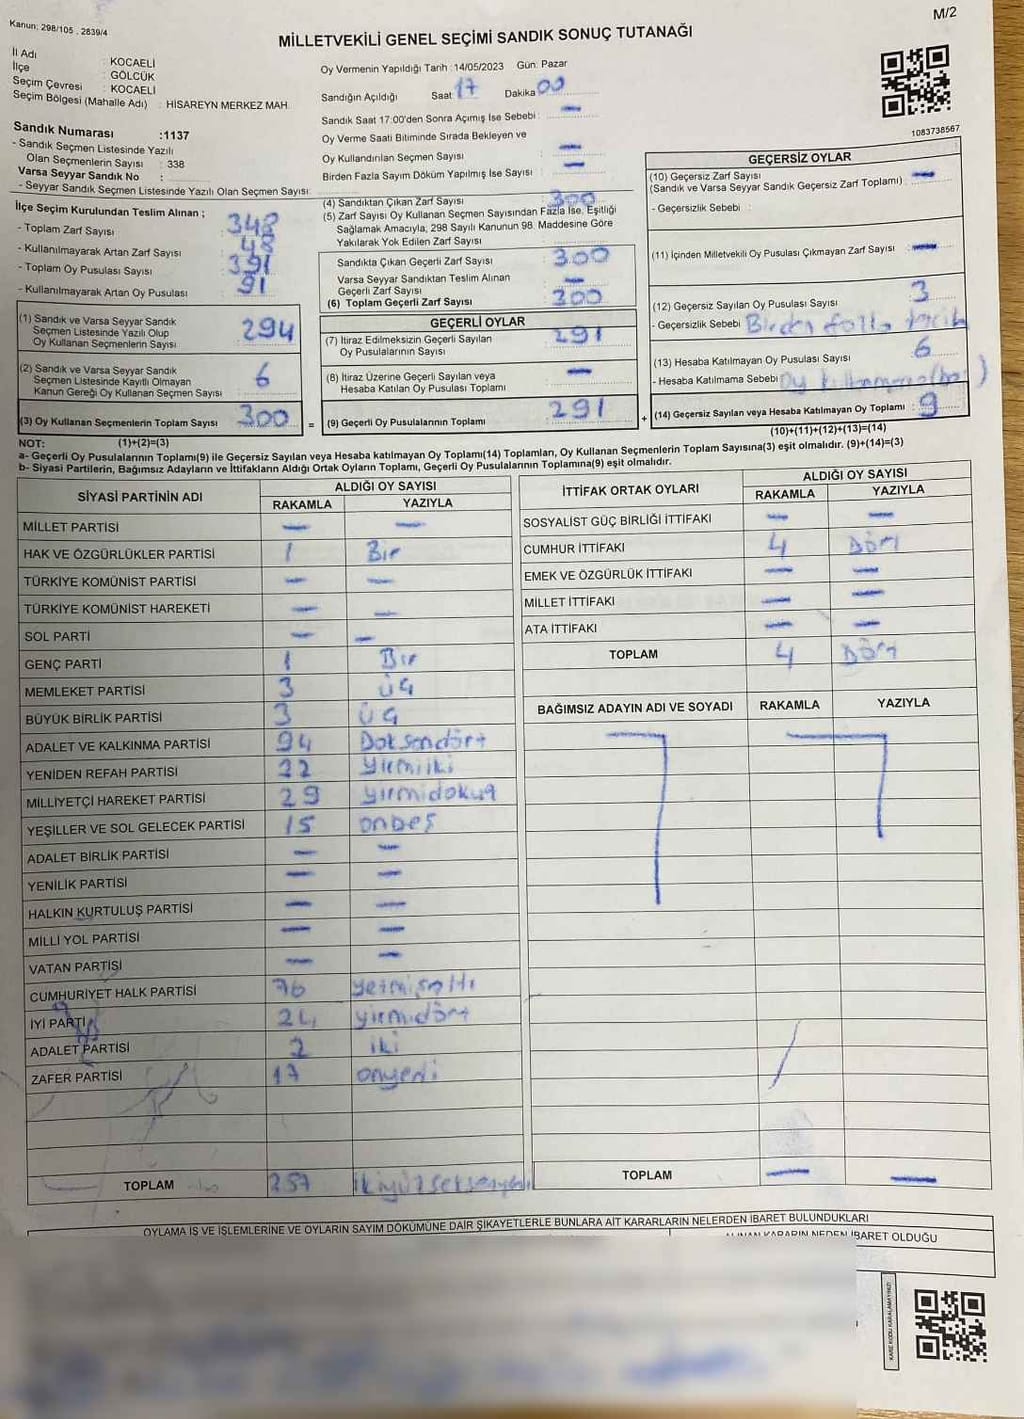 Kanun: 298/105 . 2839/4
M/2
MİLLETVEKİLİ GENEL SEÇİMİ SANDIK SONUÇ TUTANAĞI
İl Adı : KOCAELİ
İlçe : GÖLCÜK
Seçim Çevresi : KOCAELİ
Seçim Bölgesi (Mahalle Adı) : HİSAREYN MERKEZ MAH.
Sandık Numarası :1137
- Sandık Seçmen Listesinde Yazılı
Olan Seçmenlerin Sayısı : 338
Varsa Seyyar Sandık No :
- Seyyar Sandık Seçmen Listesinde Yazılı Olan Seçmen Sayısı:
Oy Vermenin Yapıldığı Tarih :14/05/2023 Gün: Pazar
Sandığın Açıldığı Saat 17 Dakika 00
Sandık Saat 17:00'den Sonra Açımış İse Sebebi : —
Oy Verme Saati Bitiminde Sırada Bekleyen ve
Oy Kullandırılan Seçmen Sayısı —
Birden Fazla Sayım Döküm Yapılmış İse Sayısı : —
1083738567
İlçe Seçim Kurulundan Teslim Alınan ;
- Toplam Zarf Sayısı : 348
- Kullanılmayarak Artan Zarf Sayısı : 48
- Toplam Oy Pusulası Sayısı : 391
- Kullanılmayarak Artan Oy Pusulası : 91
(1) Sandık ve Varsa Seyyar Sandık
Seçmen Listesinde Yazılı Olup
Oy Kullanan Seçmenlerin Sayısı : 294
(2) Sandık ve Varsa Seyyar Sandık
Seçmen Listesinde Kayıtlı Olmayan
Kanun Gereği Oy Kullanan Seçmen Sayısı : 6
(3) Oy Kullanan Seçmenlerin Toplam Sayısı : 300
(4) Sandıktan Çıkan Zarf Sayısı : 300
(5) Zarf Sayısı Oy Kullanan Seçmen Sayısından Fazla İse, Eşitliği
Sağlamak Amacıyla, 298 Sayılı Kanunun 98. Maddesine Göre
Yakılarak Yok Edilen Zarf Sayısı :
Sandıkta Çıkan Geçerli Zarf Sayısı : 300
Varsa Seyyar Sandıktan Teslim Alınan
Geçerli Zarf Sayısı : —
(6) Toplam Geçerli Zarf Sayısı : 300
GEÇERLİ OYLAR
(7) İtiraz Edilmeksizin Geçerli Sayılan
Oy Pusulalarının Sayısı : 291
(8) İtiraz Üzerine Geçerli Sayılan veya
Hesaba Katılan Oy Pusulası Toplamı : —
= (9) Geçerli Oy Pusulalarının Toplamı : 291
GEÇERSİZ OYLAR
(10) Geçersiz Zarf Sayısı : —
(Sandık ve Varsa Seyyar Sandık Geçersiz Zarf Toplamı)
- Geçersizlik Sebebi :
(11) İçinden Milletvekili Oy Pusulası Çıkmayan Zarf Sayısı : —
(12) Geçersiz Sayılan Oy Pusulası Sayısı : 3
- Geçersizlik Sebebi : Birden fazla tercih
(13) Hesaba Katılmayan Oy Pusulası Sayısı : 6
- Hesaba Katılmama Sebebi : Oy
+ (14) Geçersiz Sayılan veya Hesaba Katılmayan Oy Toplamı : 9
NOT: (1)+(2)=(3)
(10)+(11)+(12)+(13)=(14)
a- Geçerli Oy Pusulalarının Toplamı(9) ile Geçersiz Sayılan veya Hesaba katılmayan Oy Toplamı(14) Toplamları, Oy Kullanan Seçmenlerin Toplam Sayısına(3) eşit olmalıdır. (9)+(14)=(3)
b- Siyasi Partilerin, Bağımsız Adayların ve İttifakların Aldığı Ortak Oyların Toplamı, Geçerli Oy Pusulalarının Toplamına(9) eşit olmalıdır.
SİYASİ PARTİNİN ADI ALDIĞI OY SAYISI
RAKAMLA YAZIYLA
MİLLET PARTİSİ — —
HAK VE ÖZGÜRLÜKLER PARTİSİ 1 Bir
TÜRKİYE KOMÜNİST PARTİSİ — —
TÜRKİYE KOMÜNİST HAREKETİ — —
SOL PARTİ — —
GENÇ PARTİ 1 Bir
MEMLEKET PARTİSİ 3 Üç
BÜYÜK BİRLİK PARTİSİ 3 Üç
ADALET VE KALKINMA PARTİSİ 94 Doksandört
YENİDEN REFAH PARTİSİ 22 Yirmiiki
MİLLİYETÇİ HAREKET PARTİSİ 29 yirmidokuz
YEŞİLLER VE SOL GELECEK PARTİSİ 15 onbeş
ADALET BİRLİK PARTİSİ — —
YENİLİK PARTİSİ — —
HALKIN KURTULUŞ PARTİSİ — —
MİLLİ YOL PARTİSİ — —
VATAN PARTİSİ — —
CUMHURİYET HALK PARTİSİ 76 yetmişaltı
İYİ PARTİ 24 yirmidört
ADALET PARTİSİ 2 iki
ZAFER PARTİSİ 17 onyedi
TOPLAM 287 ikiyüzseksenyedi
İTTİFAK ORTAK OYLARI ALDIĞI OY SAYISI
RAKAMLA YAZIYLA
SOSYALİST GÜÇ BİRLİĞİ İTTİFAKI — —
CUMHUR İTTİFAKI 4 Dört
EMEK VE ÖZGÜRLÜK İTTİFAKI — —
MİLLET İTTİFAKI — —
ATA İTTİFAKI — —
TOPLAM 4 Dört
BAĞIMSIZ ADAYIN ADI VE SOYADI RAKAMLA YAZIYLA
TOPLAM — —
OYLAMA İŞ VE İŞLEMLERİNE VE OYLARIN SAYIM DÖKÜMÜNE DAİR ŞİKAYETLERLE BUNLARA AİT KARARLARIN NELERDEN İBARET BULUNDUKLARI
ALINAN KARARIN NEDEN İBARET OLDUĞU
KARE KODU KARALAMAYINIZ!